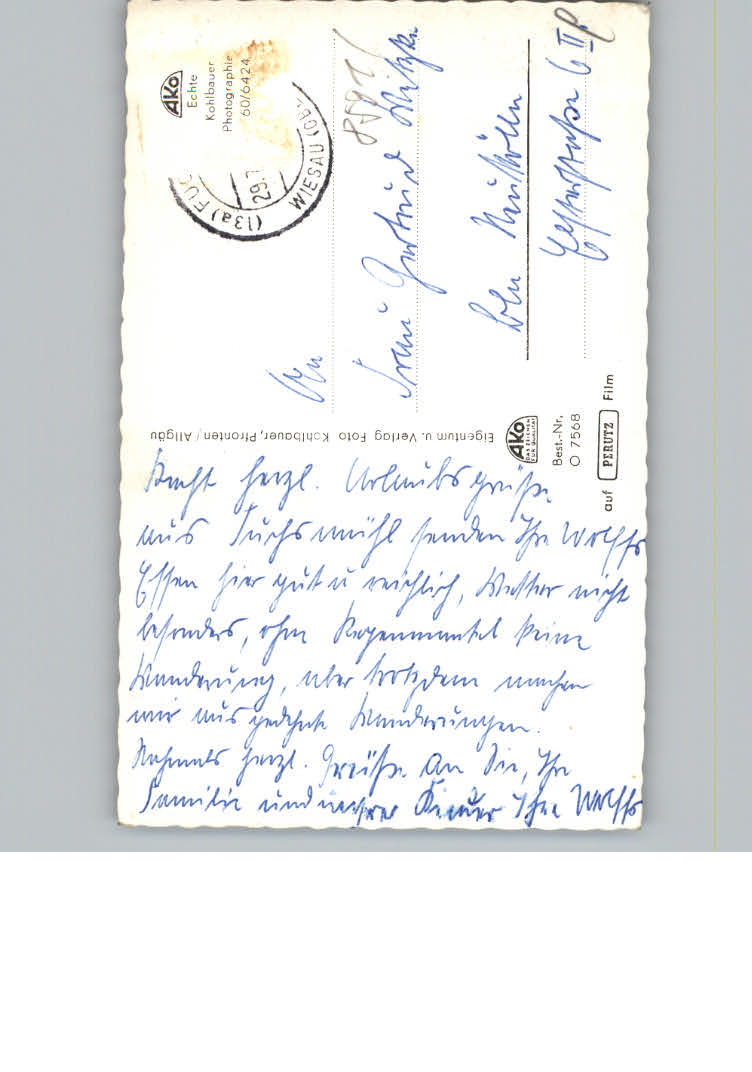 Recht herzl. Urlaubsgrüße
aus Fuchsmühl senden Ihn Wolffs
Essen hier gut u reichlich, Wetter nicht
besonders, ohne Regenmantel keine
Wanderung, aber trotzdem machen
wir ausgedehnte Wanderungen.
Nochmals herzl. Grüße an Sie, Ihre
Familie und unsrer Ihre Wolffs
Eigentum u. Verlag Foto Kohlbauer, Pfronten/Allgäu
AKO
DAS ZEICHEN
FÜR QUALITÄT
Best.-Nr.
O 7568
auf PERUTZ Film
AKO
Echte
Kohlbauer
Photographie
60/6424
(13a) FUC
29.7
WIESAU (OB
8591/
An
Frau Gertrud
Bln Neukölln
6 II